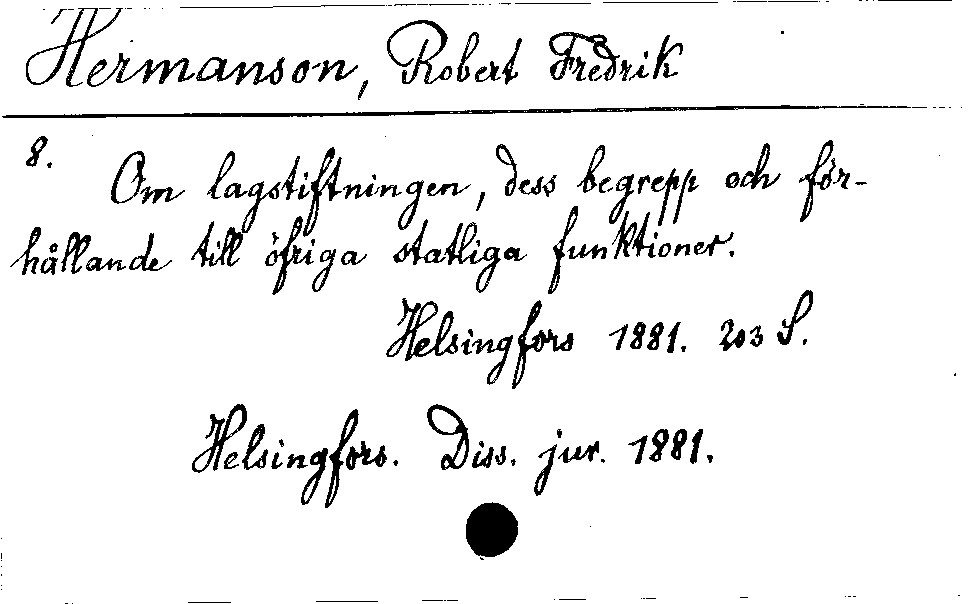 Hermanson, Robert Fredrik
8.
Om lagstiftningen, dess begrepp och för-
hållande till öfriga statliga funktioner.
Helsingfors 1881. 203 S.
Helsingfors. Diss. jur. 1881.